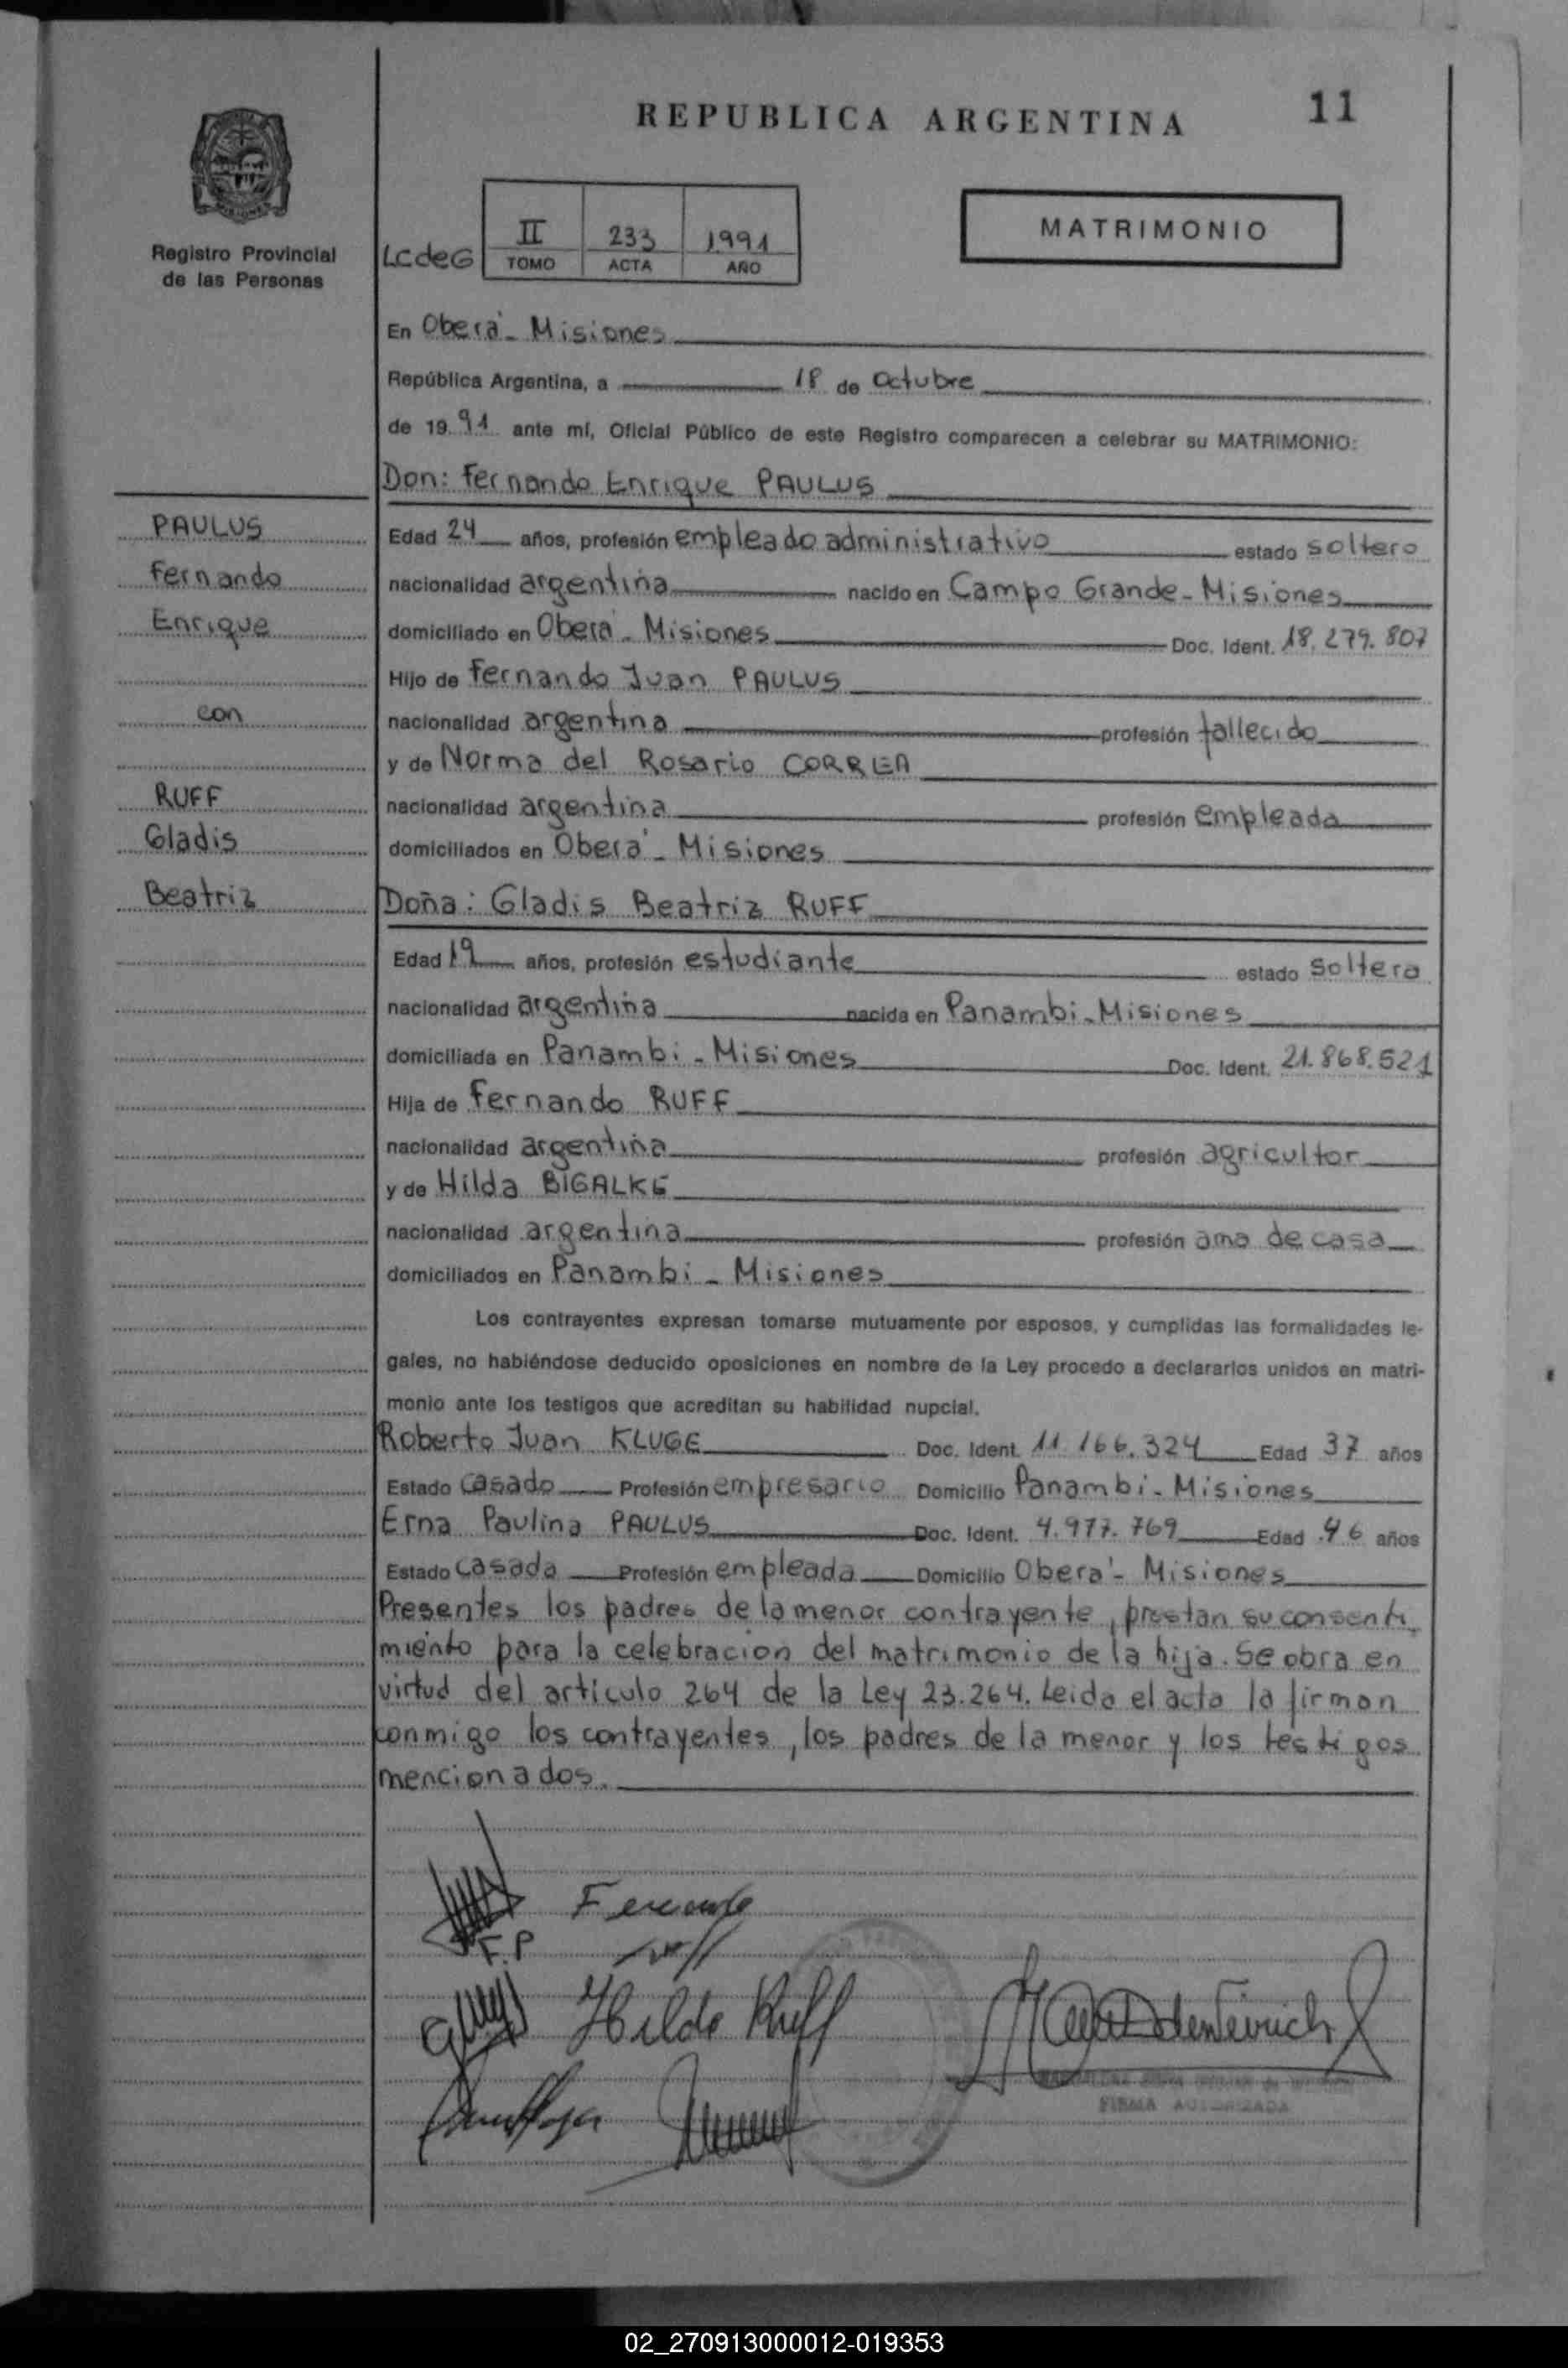 REPUBLICA ARGENTINA
11
Registro Provincial
de las Personas
LCdeG
II
233
1991
TOMO
ACTA
AÑO
MATRIMONIO
En Oberá - Misiones
República Argentina, a 18 de octubre
de 1991 ante mí, Oficial Público de este Registro comparecen a celebrar su MATRIMONIO:
Don: Fernando Enrique PAULUS
PAULUS
Fernando
Enrique
con
RUFF
Gladis
Beatriz
Edad 24 años, profesión empleado administrativo estado soltero
nacionalidad argentina nacido en Campo Grande - Misiones
domiciliado en Oberá - Misiones Doc. Ident. 18.279.807
Hijo de Fernando Juan PAULUS
nacionalidad argentina profesión fallecido
y de Norma del Rosario CORREA
nacionalidad argentina profesión empleada
domiciliados en Oberá - Misiones
Doña: Gladis Beatriz RUFF
Edad 19 años, profesión estudiante estado soltera
nacionalidad argentina nacida en Panambi - Misiones
domiciliada en Panambi - Misiones Doc. Ident. 21.868.521
Hija de Fernando RUFF
nacionalidad argentina profesión agricultor
y de Hilda BIGALKE
nacionalidad argentina profesión ama de casa
domiciliados en Panambi - Misiones
Los contrayentes expresan tomarse mutuamente por esposos, y cumplidas las formalidades le-
gales, no habiéndose deducido oposiciones en nombre de la Ley procedo a declararlos unidos en matri-
monio ante los testigos que acreditan su habilidad nupcial.
Roberto Juan KLUGE Doc. Ident. 11.166.324 Edad 37 años
Estado casado Profesión empresario Domicilio Panambi - Misiones
Erna Paulina PAULUS Doc. Ident. 4.977.769 Edad 46 años
Estado casada Profesión empleada Domicilio Oberá - Misiones
Presentes los padres de la menor contrayente, prestan su consenti
miento para la celebracion del matrimonio de la hija. Se obra en
virtud del articulo 264 de la Ley 23.264. Leida el acta la firman
conmigo los contrayentes, los padres de la menor y los testigos
mencionados.
F.P
Fernando
ruff
Hilda Ruff
FIRMA AUTORIZADA
02_270913000012-019353